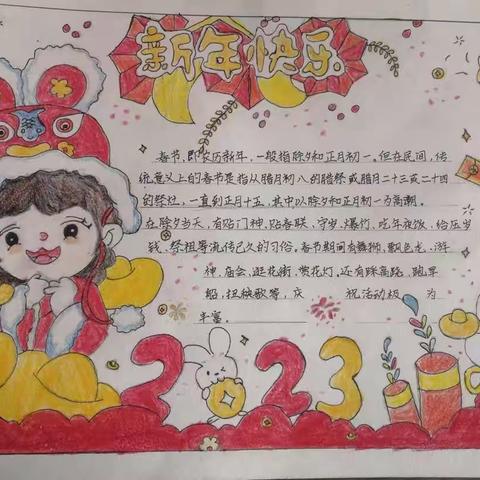 新年快乐
春节,即农历新年,一般指除夕和正月初一。但在民间,传
统意义上的春节是指从腊月初八的腊祭或腊月二十三或二十四
的祭灶,一直到正月十五,其中以除夕和正月初一为高潮。
在除夕当天,有贴门神、贴春联、守岁、爆竹、吃年夜饭、给压岁
钱、祭祖等流传已久的习俗。春节期间有舞狮、飘色、游
神、庙会、逛花街、赏花灯,还有踩高跷、跑旱
船、扭秧歌等,庆 祝活动极 为
丰富。
2023